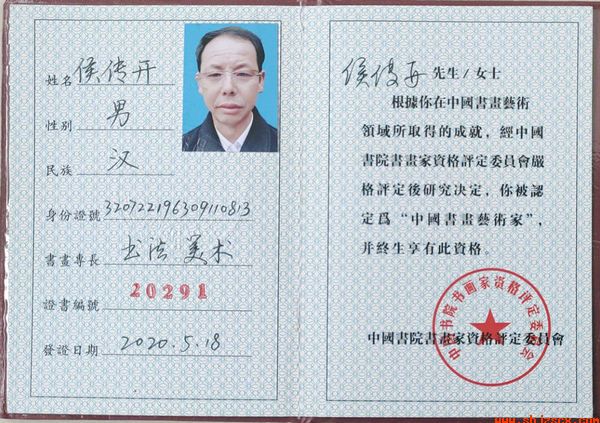 姓名 侯传开
性别 男
民族 汉
身份證號 320722196309110813
書畫專長 书法 美术
證書編號 20291
發證日期 2020.5.18
侯传开 先生/女士
根據你在中國書畫藝術
領域所取得的成就，經中國
書院書畫家資格評定委員會嚴
格評定後研究决定，你被認
定爲“中國書畫藝術家”，
并終生享有此資格。
中國書院書畫家資格評定委員會
中国书院书画家资格评定委员会